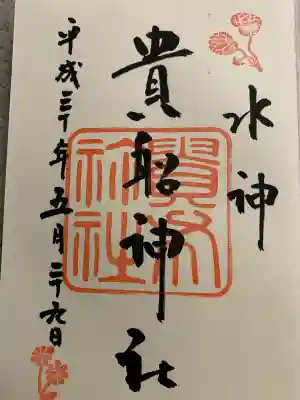 水神
貴船神社
平成三十年五月二十九日
貴船
神社